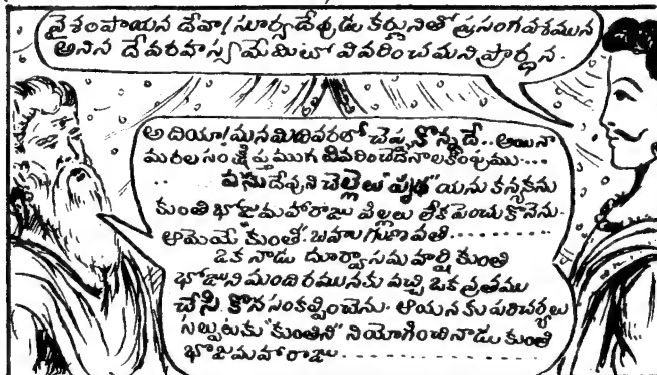 వైశంపాయన దేవా! సూర్యదేవుడు కర్ణునితో ప్రసంగవశమున
అనిన దేవరహస్యమేమిటో వివరించమని ప్రార్థన.
అదియా! మనమిదివరలో చెప్పుకొన్నదే.. అయినా
మరల సంక్షిప్తముగ వివరించెదనాలకింపుము....
.. వసుదేవుని చెల్లెలు "పృథ" యను కన్యకను
కుంతి భోజమహారాజు పిల్లలు లేక పెంచుకొనెను.
ఆమెయే కుంతి. బహుగుణవతి..........
ఒక నాడు దూర్వాసమహర్షి కుంతి
భోజుని మందిరమునకు వచ్చి ఒక వ్రతము
చేసి కొన సంకల్పించెను. ఆయనకు పరిచర్యలు
సల్పుటకు "కుంతిని" నియోగించినాడు కుంతి
భోజమహారాజు.....................